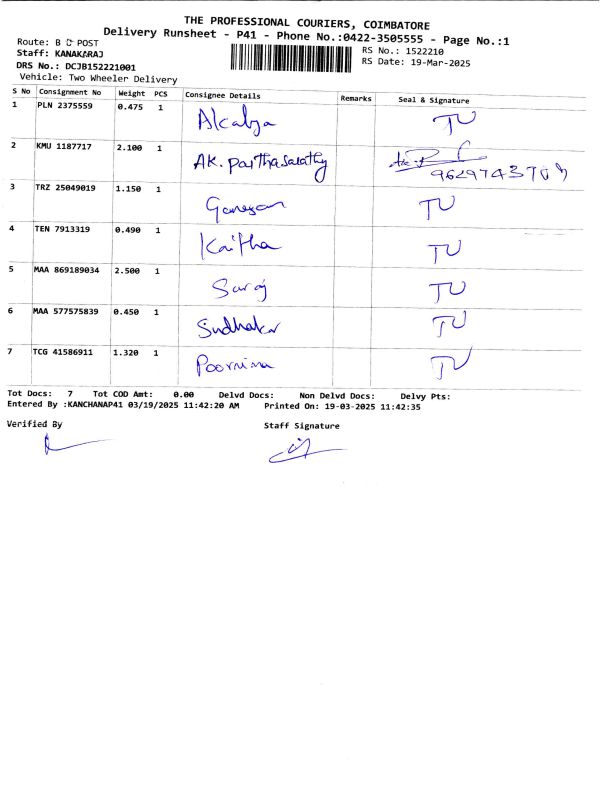 THE PROFESSIONAL COURIERS, COIMBATORE
Delivery Runsheet - P41 - Phone No.:0422-3505555 - Page No.:1
Route: B C POST
RS No.: 1522210
Staff: KANAKARAJ
RS Date: 19-Mar-2025
DRS No.: DCJB152221001
Vehicle: Two Wheeler Delivery
S No Consignment No Weight PCS Consignee Details Remarks Seal & Signature
1 PLN 2375559 0.475 1 TU
2 KMU 1187717 2.100 1 AK. Parthasarathy
3 TRZ 25049019 1.150 1 Ganesan TU
4 TEN 7913319 0.490 1 Kaitha TU
5 MAA 869189034 2.500 1 Suraj TU
6 MAA 577575839 0.450 1 Sudhakar TU
7 TCG 41586911 1.320 1 Poornima TU
Tot Docs: 7 Tot COD Amt: 0.00 Delvd Docs: Non Delvd Docs: Delvy Pts:
Entered By :KANCHANAP41 03/19/2025 11:42:20 AM Printed On: 19-03-2025 11:42:35
Verified By Staff Signature